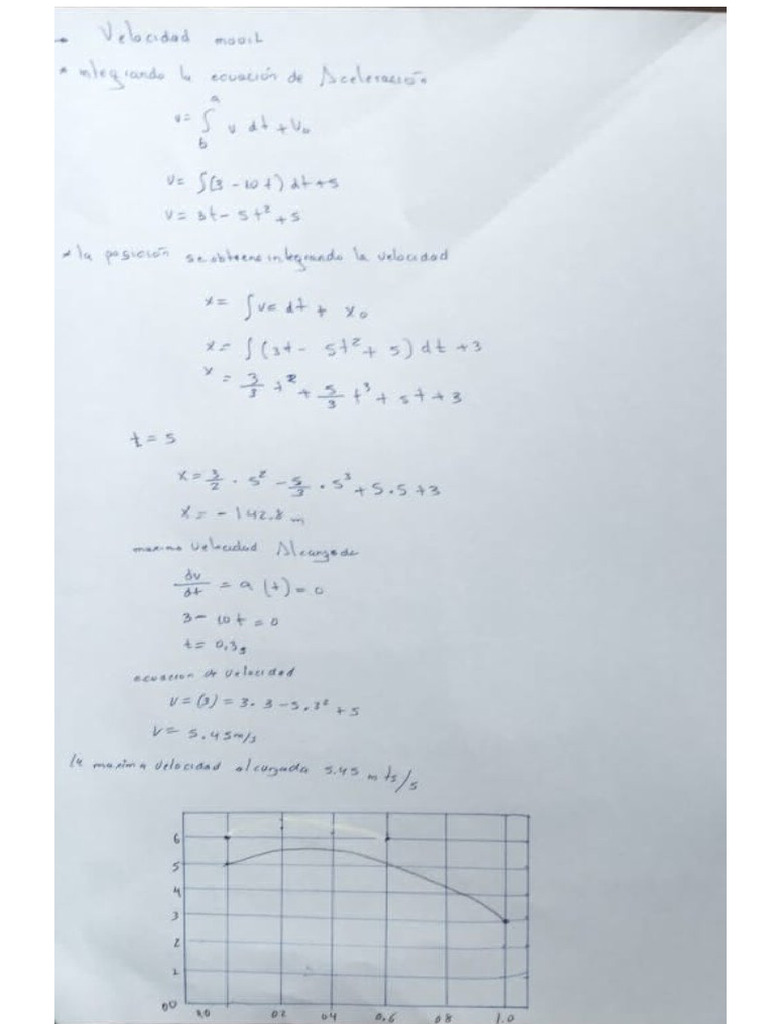 - Velocidad movil
* integrando la ecuación de Aceleración
v= ∫ᵇᵃ v dt + V₀
v= ∫(3 - 10t) dt + 5
v= 3t - 5t² + 5
* la posición se obtiene integrando la velocidad
x= ∫v= dt + x₀
x= ∫(3t - 5t² + 5) dt + 3
x = 3/3 t² + 5/3 t³ + 5t + 3
t = 5
x= 3/2 · 5² - 5/3 · 5³ + 5.5 + 3
x= - 142.8 m
maxima velocidad Alcanzada
dv/dt = a (t) = 0
3 - 10t = 0
t= 0.3s
ecuacion de velocidad
v= (3) = 3. 3 - 5.3² + 5
v= 5.45m/s
la maxima velocidad alcanzada 5.45 mts/s
6
5
4
3
2
1
00
0.0 02 04 0.6 08 1.0